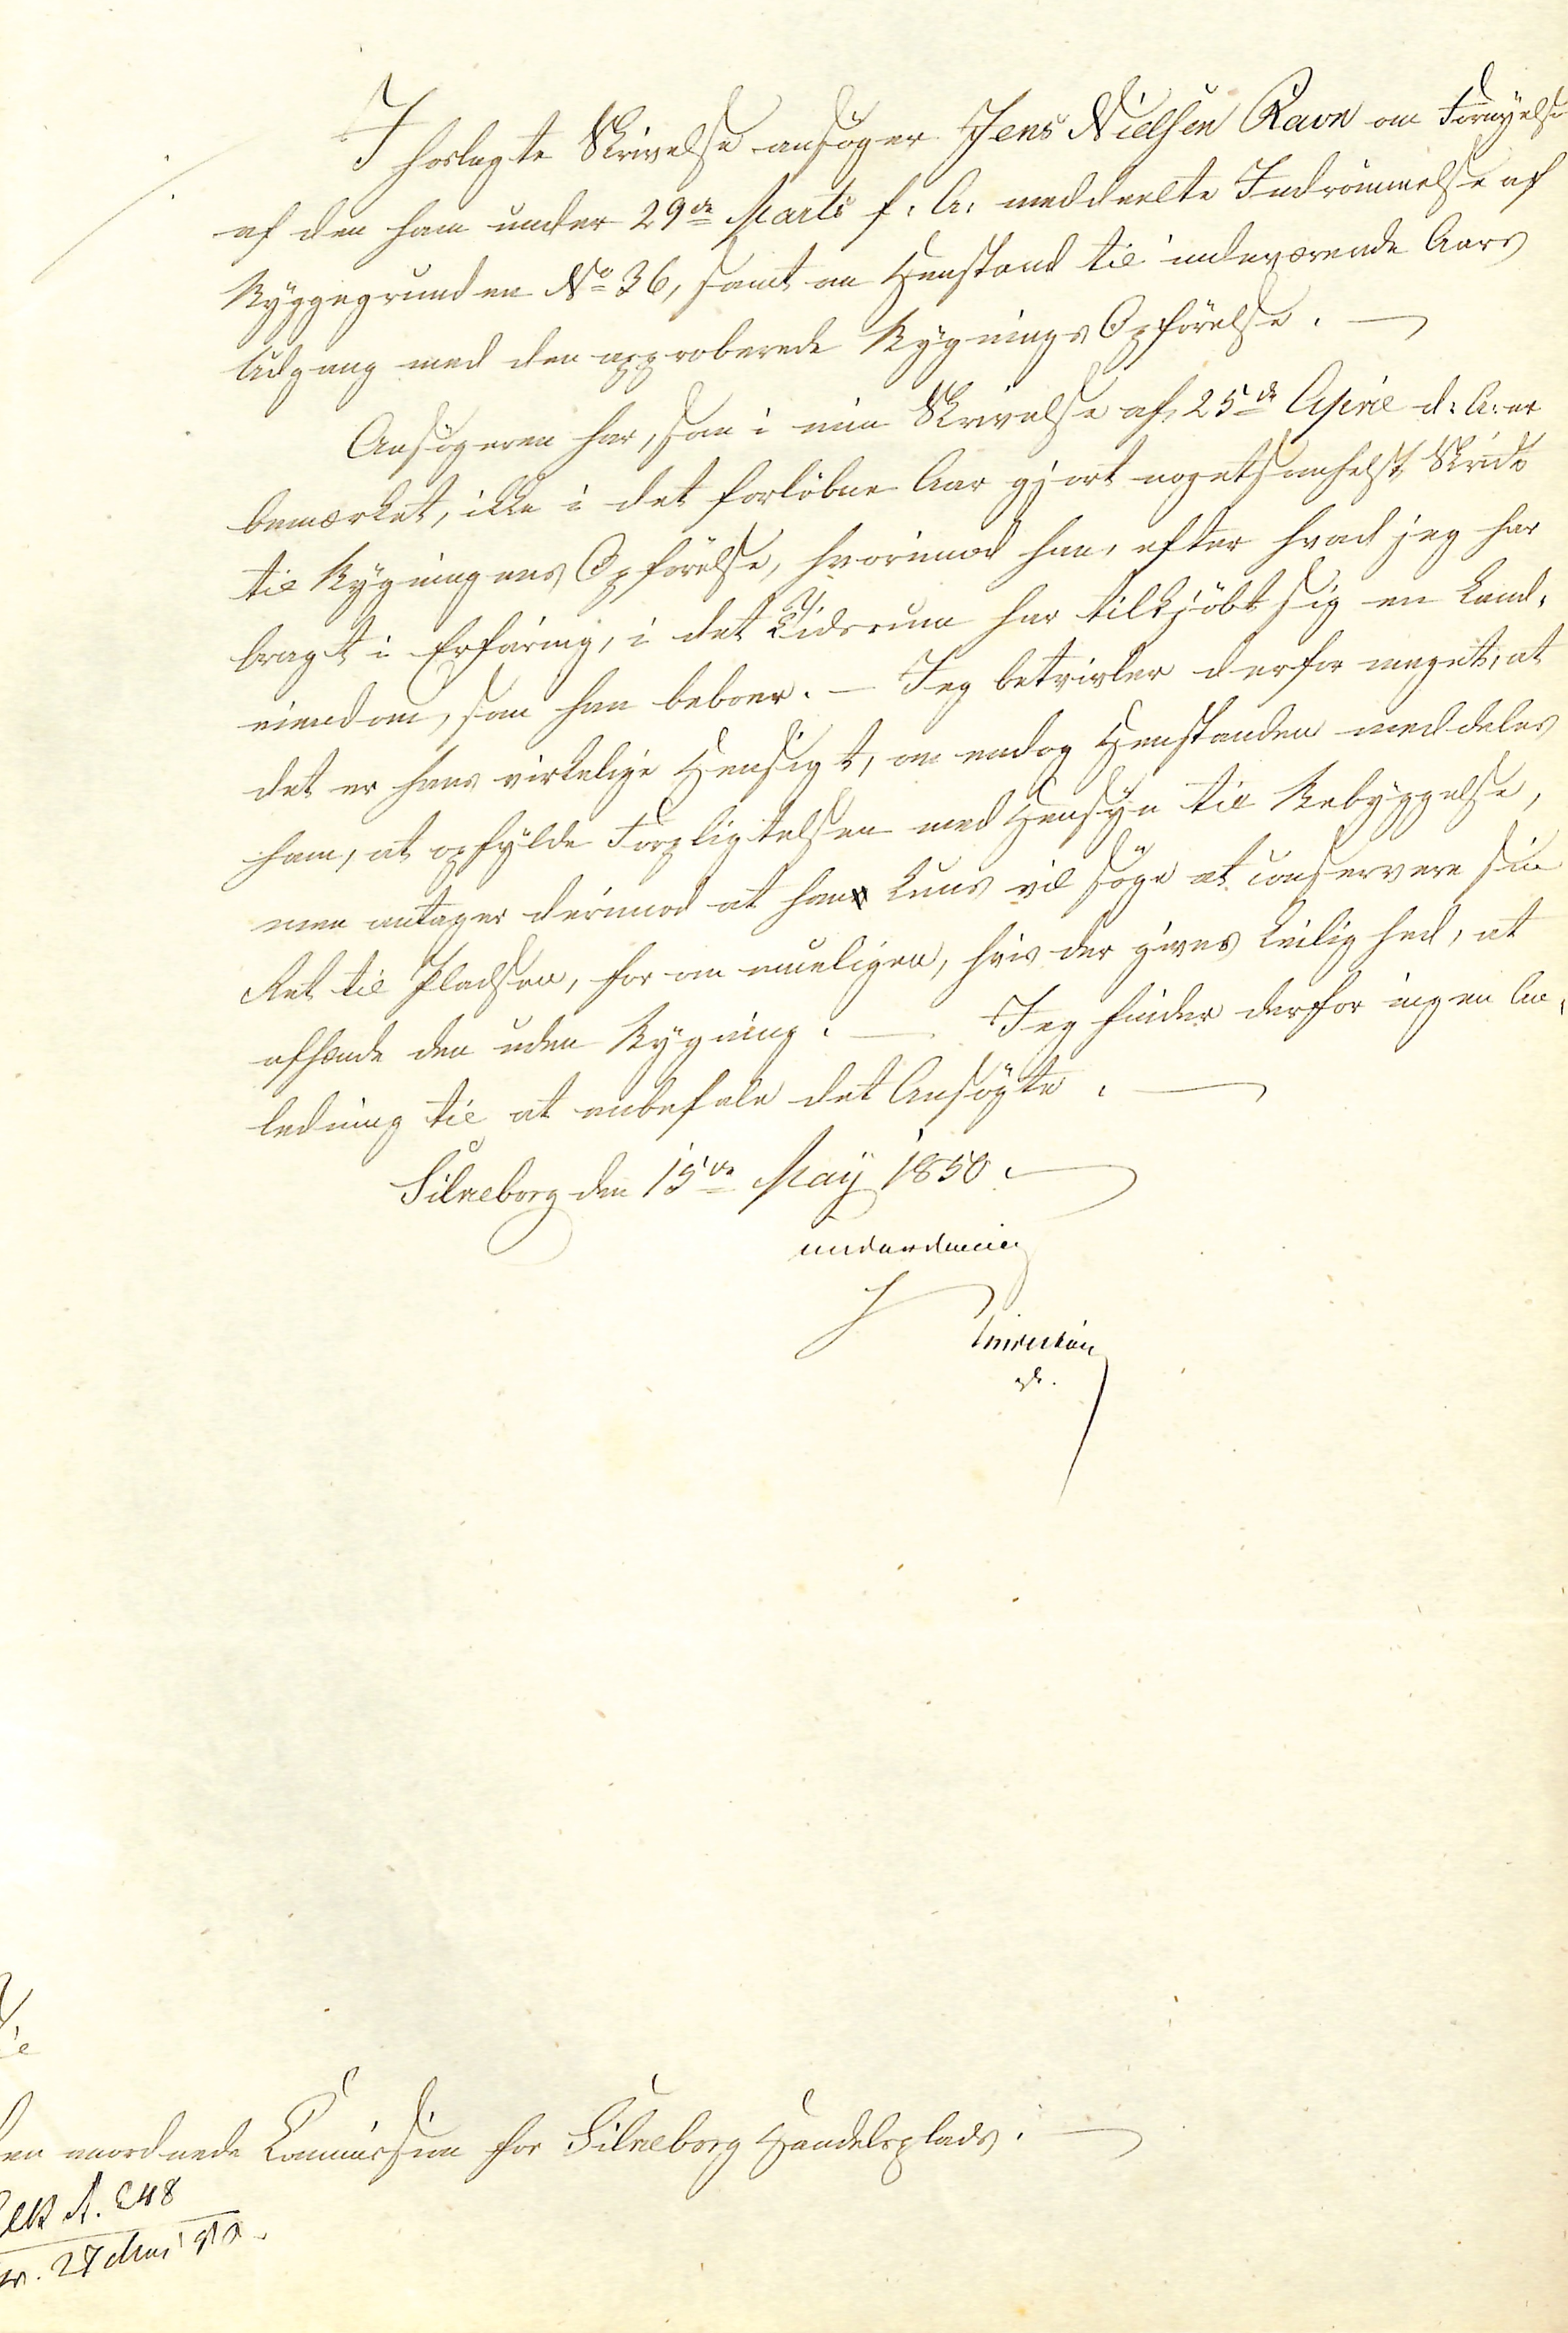 I hoslagte Skrivelse ansøger Jens Nielsen Ravn om Fornÿelse
af den ham under 29de Marts f: A: meddeelte Indrömmelse af
Byggegrunden No 36, samt om Henstand til indeværende Aars
Udgang med den approberede Bygnings Opförelse. —
Ansögeren har, som i min Skrivelse af 25de April d: A: er
bemærket, ikke i det forlöbne Aar gjort nogetsomhelst Skridt
til Bÿgningens Opförelse, hvorimod han, efter hvad jeg har
bragt i Erfaring, i det Tidsrum har tilkjöbt sig en Land-
eiendom, som han beboer. — Jeg betvivler derfor meget, at
det er hans virkelige Hensigt, om endog Henstanden meddeles
ham, at opfÿlde Forpligtelsen med Hensÿn til Bebyggelse,
men antager derimod at han kuns vil söge at conservere sin
Ret til Pladsen, for om mueligen, hvis der gives Leilighed, at
afhænde den uden Bÿgning. — Jeg finder derfor ingen An-
ledning til at anbefale det Ansögte. —
Silkeborg den 15de Maÿ 1850. —
underdanig
cst.
en anordnede Commission for Silkeborg Handelsplads. —
A. 248
27 Mai 50.